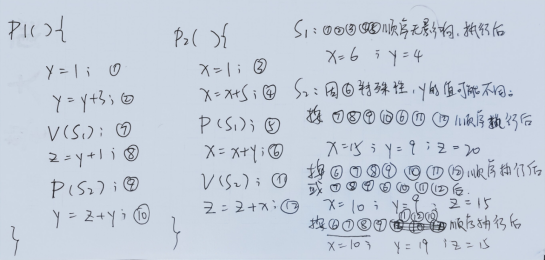 P1(){
y=1; ①
y=y+3; ②
V(S1); ⑦
z=y+1; ⑧
P(S2); ⑨
y=z+y; ⑩
}
P2(){
x=1; ③
x=x+5; ④
P(S1); ⑤
x=x+y; ⑥
V(S2); ⑪
z=z+x; ⑫
}
S1: ①②③④⑤顺序无影响,执行后
x=6 ; y=4
S2: 因⑥特殊性,y的值可能不同。
按⑦⑧⑨⑩⑥⑪⑫顺序执行后
x=15 ; y=9 ; z=20
按⑥⑦⑧⑨⑩⑪⑫顺序执行后
或⑦⑧⑨⑥⑩⑪⑫后
x=10 ; y=9 z=15
⑪⑫⑩
按⑥⑦⑧⑨顺序执行后
x=10; y=19 ; z=15